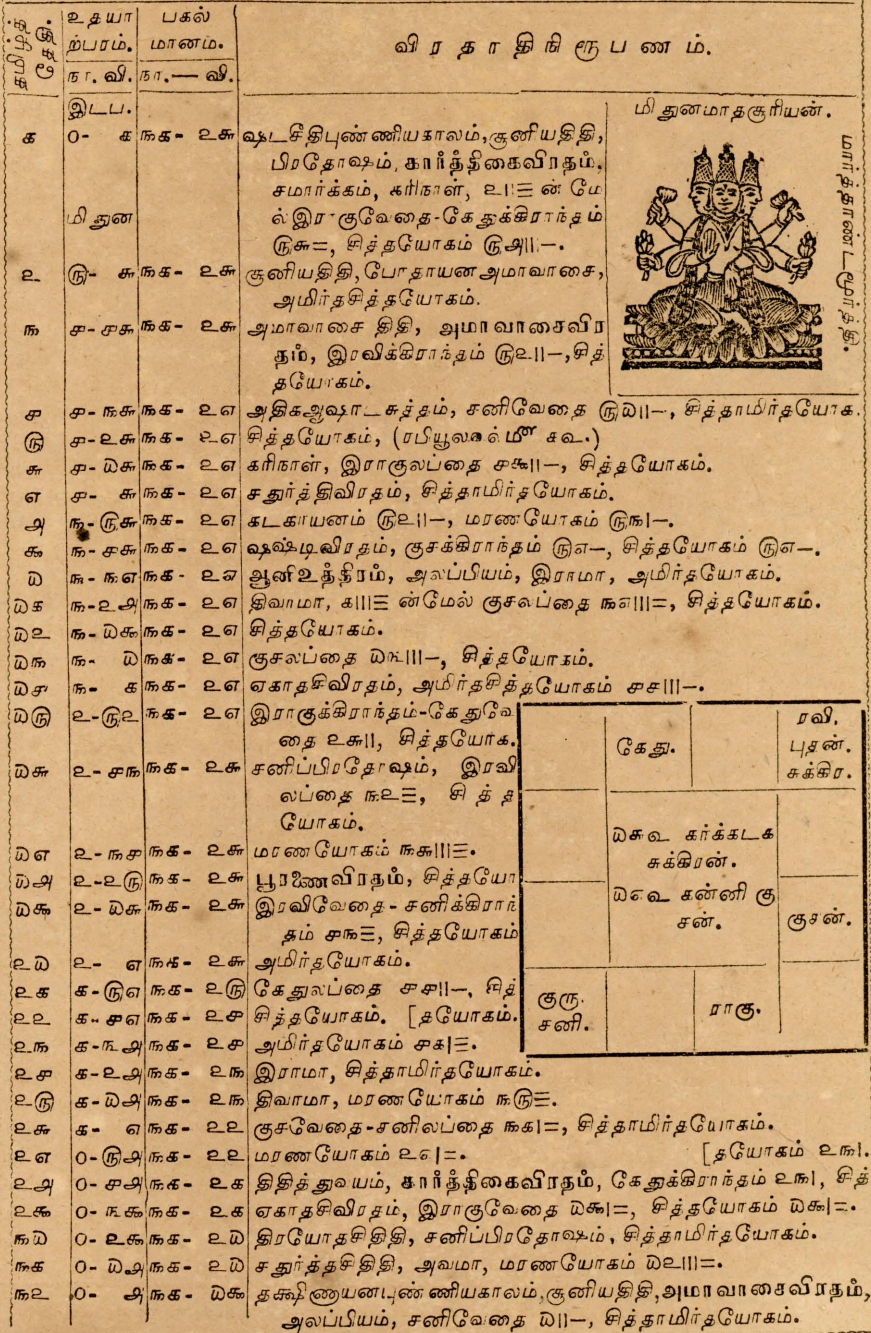 தமிழ்த் தேதி.
உதயா ற்பரம். பகல் மானம். விரதாதிநிரூபணம்.
நா. வி. நா.— வி.
இடப. மிதுனமாதசூரியன்.
௧ ௦- ௧ ௩௧- ௨௬ ஷடசீதிபுண்ணியகாலம்,சூனியதிதி,
பிரதோஷம், கார்த்திகைவிரதம்,
சமார்க்கம், கரிநாள், ன் மே
மிதுன ல்இராகுவேதை-கேதுக்கிராந்தம்
௫௬=, சித்தயோகம் ௫௮||–.
மார்த்தாண்டமூர்த்தி.
௨ ௫- ௬ ௩௧- ௨௬ சூனியதிதி,போதாயனஅமாவாசை,
அமிர்தசித்தயோகம்.
௩ ௪-௪௬ ௩௧- ௨௬ அமாவாசை திதி, அமாவாசைவிர
தம், இரவிக்கிராந்தம் ௫௨||–,சித்
தயோகம்.
௪ ௪-௩௬ ௩௧- ௨௭ அதிகஆஷாடசுத்தம், சனிவேதை ௫௰||–, சித்தாமிர்தயோக.
௫ ௪-௨௬ ௩௧- ௨௭ சித்தயோகம்,
௬ ௪-௰௬ ௩௧- ௨௭ கரிநாள், இராகுலப்தை ௪௯||–, சித்தயோகம்.
௭ ௪- ௬ ௩௧- ௨௭ சதுர்த்திவிரதம், சித்தாமிர்தயோகம்.
௮ ௩-௫௬ ௩௧- ௨௭ கடகாயனம் ௫௨||–, மரணயோகம் ௫௩|–.
௯ ௩-௪௬ ௩௧- ௨௭ ஷஷ்டிவிரதம், குசக்கிராந்தம் ௫௭–, சித்தயோகம் ௫௭–.
௰ ௩-௩௭ ௩௧- ௨௭ ஆனிஉத்திரம், அலப்பியம், இராமா, அமிர்தயோகம்.
௰௧ ௩-௨௮ ௩௧- ௨௭ திவாமா, ௧|||☰ ன்மேல் குசலப்தை ௩௭|||=, சித்தயோகம்.
௰௨ ௩-௰௯ ௩௧- ௨௭ சித்தயோகம்.
௰௩ ௩- ௰ ௩௧- ௨௭ குசலப்தை ௰௩|||–, சித்தயோகம்.
௰௪ ௩- ௧ ௩௧- ௨௭ ஏகாதசிவிரதம், அமிர்தசித்தயோகம் ௪௪|||–.
௰௫ ௨-௫௨ ௩௧- ௨௭ இராகுக்கிராந்தம்-கேதுவே
தை ௨௬||, சித்தயோக.
௰௬ ௨-௪௩ ௩௧- ௨௬ சனிப்பிரதோஷம், இரவி
லப்தை ௩௨☰, சித்த
யோகம்.
௰௭ ௨-௩௪ ௩௧- ௨௬ மரணயோகம் ௩௬|||☰.
௰௮ ௨-௨௫ ௩௧- ௨௬ பூரணைவிரதம், சித்தயோ
௰௯ ௨-௰௬ ௩௧- ௨௬ இரவிவேதை-சனிக்கிராந்
தம் ௪௩☰, சித்தயோகம்
௨௰ ௨- ௭ ௩௧- ௨௬ அமிர்தயோகம்.
௨௧ ௧-௫௭ ௩௧- ௨௫ கேதுலப்தை ௪௪||–, சித்
௨௨ ௧-௪௭ ௩௧- ௨௪ சித்தயோகம். [தயோகம்.
௨௩ ௧-௩௮ ௩௧- ௨௪ அமிர்தயோகம் ௪௧|☰.
கேது.
ரவி,
புதன்.
சுக்கிர.
௰௬௳ கர்க்கடக
சுக்கிரன்.
௰௭௳ கன்னி கு
சன்.
குசன்.
குரு.
சனி.
ராகு.
௨௪ ௧-௨௮ ௩௧- ௨௩ இராமா, சித்தாமிர்தயோகம்.
௨௫ ௧-௰௮ ௩௧- ௨௩ திவாமா, மரணயோகம் ௩௫☰.
௨௬ ௧- ௭ ௩௧- ௨௨ குசவேதை-சனிலப்தை ௩௧|=, சித்தாமிர்தயோகம்.
௨௭ ௦-௫௮ ௩௧- ௨௨ மரணயோகம் ௨௭|=. [தயோகம் ௨௩|.
௨௮ ௦-௪௮ ௩௧- ௨௧ திதித்துவயம், கார்த்திகைவிரதம், கேதுக்கிராந்தம் ௨௩|, சித்
௨௯ ௦-௩௯ ௩௧- ௨௧ ஏகாதசிவிரதம், இராகுவேதை ௰௯|=, சித்தயோகம் ௰௯|=.
௩௰ ௦-௨௯ ௩௧- ௨௰ திரயோதசிதிதி, சனிப்பிரதோஷம், சித்தாமிர்தயோகம்.
௩௧ ௦-௰௮ ௩௧- ௨௰ சதுர்த்தசிதிதி, அவமா, மரணயோகம் ௰௨|||=.
௩௨ ௦- ௮ ௩௧- ௰௯ தக்ஷிணாயனபுண்ணியகாலம்,சூனியதிதி,அமாவாசைவிரதம்,
அலப்பியம், சனிவேதை ௰||–, சித்தாமிர்தயோகம்.